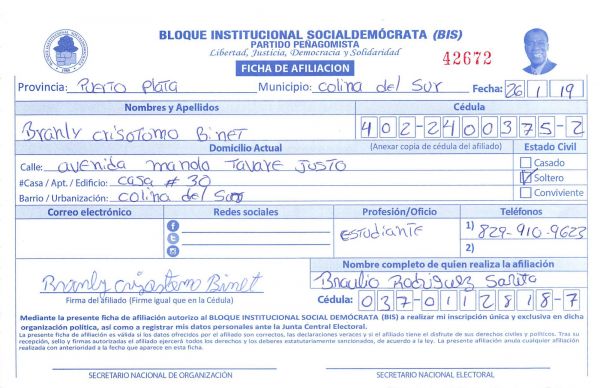 BLOQUE INSTITUCIONAL SOCIALDEMÓCRATA (BIS)
PARTIDO PEÑAGOMISTA
Libertad, Justicia, Democracia y Solidaridad
42672
FICHA DE AFILIACION
Provincia: Puerto Plata Municipio: Colina del Sur Fecha: 26/1/19
Nombres y Apellidos Cédula
Branly Crisotomo Binet 402-2400375-2
Domicilio Actual (Anexar copia de cédula del afiliado) Estado Civil
Calle: avenida manolo Tavare Justo Casado
#Casa / Apt. / Edificio: casa # 30 Soltero
Barrio / Urbanización: colina del Sur Conviviente
Correo electrónico Redes sociales Profesión/Oficio Teléfonos
Estudiante 1) 829-910-9623
2)
Nombre completo de quien realiza la afiliación
Branly Crisostomo Binet Braulio Rodriguez Sarita
Firma del afiliado (Firme igual que en la Cédula) Cédula: 037-0112818-7
Mediante la presente ficha de afiliación autorizo al BLOQUE INSTITUCIONAL SOCIAL DEMÓCRATA (BIS) a realizar mi inscripción única y exclusiva en dicha
organización política, así como a registrar mis datos personales ante la Junta Central Electoral.
La presente ficha de afiliación es válida si los datos ofrecidos por el afiliado son correctos, las declaraciones veraces y si el afiliado tiene el disfrute de sus derechos civiles y políticos. Tras su
recepción, sello y firmas autorizadas el afiliado ejercerá todos los derechos y los deberes estatutariamente sancionados, de acuerdo a la ley. La presente afiliación anula cualquier afiliación
realizada con anterioridad a la fecha que aparece en esta ficha.
SECRETARIO NACIONAL DE ORGANIZACIÓN SECRETARIO NACIONAL ELECTORAL